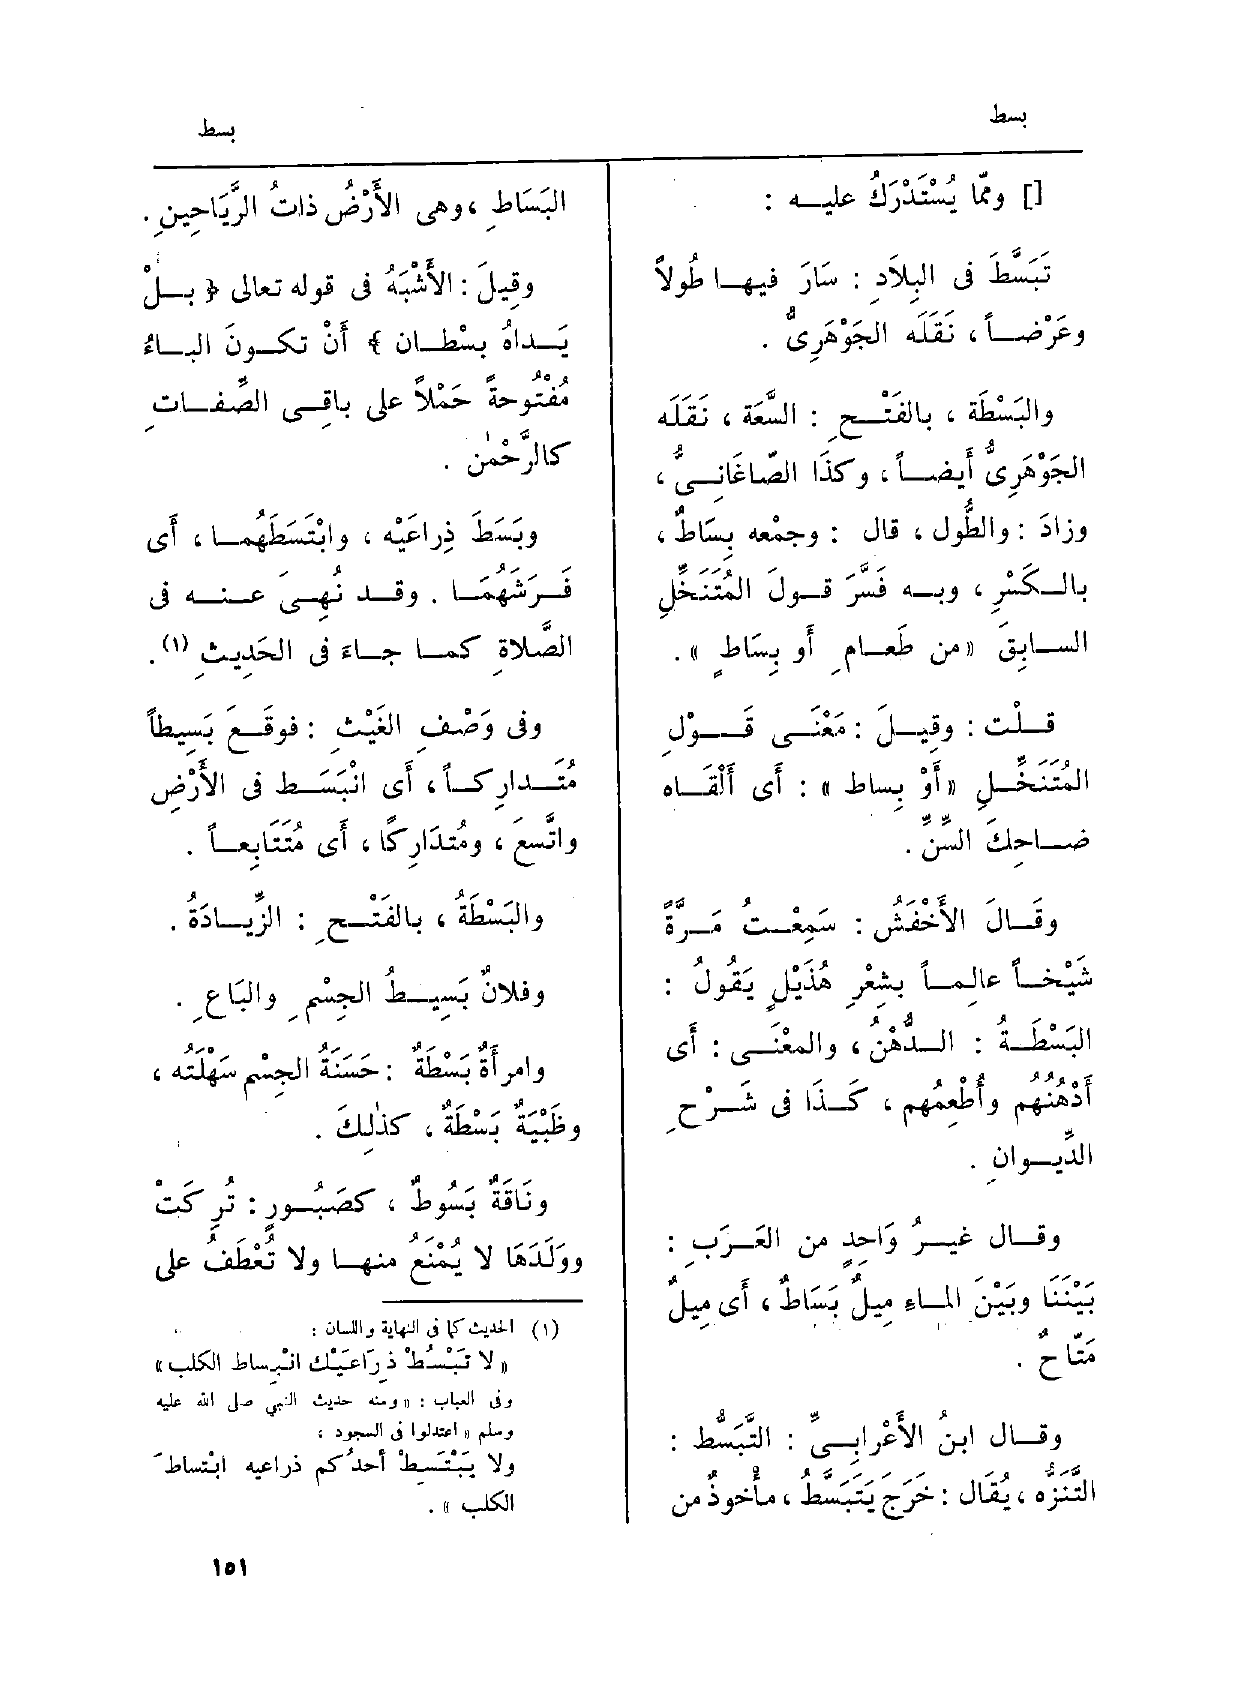 بسط
بسط
[] وممّا يُسْتَدْرَكُ عليـه :
تَبَسَّطَ فى البِلادِ : سَارَ فيهـا طُولاً
وعَرْضـاً ، نَقَلَه الجَوْهَرِىُّ .
والبَسْطَة ، بالفَتْـحِ : السَّعَة ، نَقَلَه
الجَوْهَرِىُّ أَيضـاً ، وكذَا الصّاغَانِـىُّ ،
وزادَ : والطُّول ، قال : وجمْعه بِسَاطٌ ،
بالـكَسْرِ ، وبـه فَسَّرَ قـولَ المُتَنَخِّلِ
السـابِقَ «من طَعـامٍ أَو بِسَاطٍ » .
قـلْت : وقِيـلَ : مَعْنَـى قَـوْلِ
المُتَنَخِّـلِ «أَوْ بِساط » : أَى أَلْقَـاه
ضـاحِكَ السِّنِّ .
وقَـالَ الأَخْفَشُ : سَمِعْـتُ مَـرَّةً
شَيْخـاً عالِمـاً بشِعْرِ هُذَيْلٍ يَقُولُ :
البَسْطَـةُ : الـدُّهْنُ ، والمعْنَـى : أَى
أَدْهُنُهُم وأُطْعِمُهم ، كَـذَا فى شَـرْحِ
الدِّيـوانِ .
وقـال غيـرُ وَاحِدٍ من العَـرَبِ :
بَيْنَنَا وبَيْنَ المـاءِ مِيلٌ بَسَاطٌ ، أَى مِيلٌ
مَتّاحٌ .
وقـال ابنُ الأَعْرابِـىِّ : التَّبَسُّط :
التَّنَزُّه ، يُقَال : خَرَجَ يَتَبَسَّطُ ، مأْخوذٌ من
البَسَاطِ ، وهى الأَرْضُ ذاتُ الرَّيَاحِينِ .
وقِيلَ : الأَشْبَهُ فى قوله تعالى ﴿ بـلْ
يَـداهُ بسْطـان ﴾ أَنْ تكـونَ البـاءُ
مَفْتُوحةً حَمْلاً على باقِـى الصِّفـاتِ
كالرَّحْمٰن .
وبَسَطَ ذِراعَيْه ، وابْتَسَطَهُمـا ، أَى
فَـرَشَهُمَـا . وقـد نُهِـىَ عـنـه فى
الصَّلاةِ كمـا جـاءَ فى الحَدِيثِ (١) .
وفى وَصْفِ الغَيْثِ : فوقَـعَ بَسِيطاً
مُتَـدارِكـاً ، أَى انْبَسَـط فى الأَرْضِ
واتَّسعَ ، ومُتدَارِكًا ، أَى مُتَتَابِعـاً .
والبَسْطَةُ ، بالفَتْـحِ : الزِّيـادَةُ .
وفلانٌ بَسِيـطُ الجِسْمِ والبَاعِ .
وامرأَةٌ بَسْطَةٌ : حَسَنَةُ الجِسْمِ سَهْلَتُه ،
وظَبْيَةٌ بَسْطَةٌ ، كذٰلِكَ .
ونَاقَةٌ بَسُوطٌ ، كصَبُـورٍ : تُرِكَتْ
ووَلَدَهَا لا يُمْنَعُ منهـا ولا تُعْطَفُ على
(١) الحديث كما فى النهاية واللسان :
« لا تَبْسُطْ ذِرَاعَيْك انْبِساط الكلب »
وفى العباب : «ومنه حديث النبي صلى الله عليه
وسلم « اعتدلوا فى السجود ،
ولا يَبْتَسِطْ أحدُكم ذراعيه ابْتساطَ
الكلب » .
١٥١